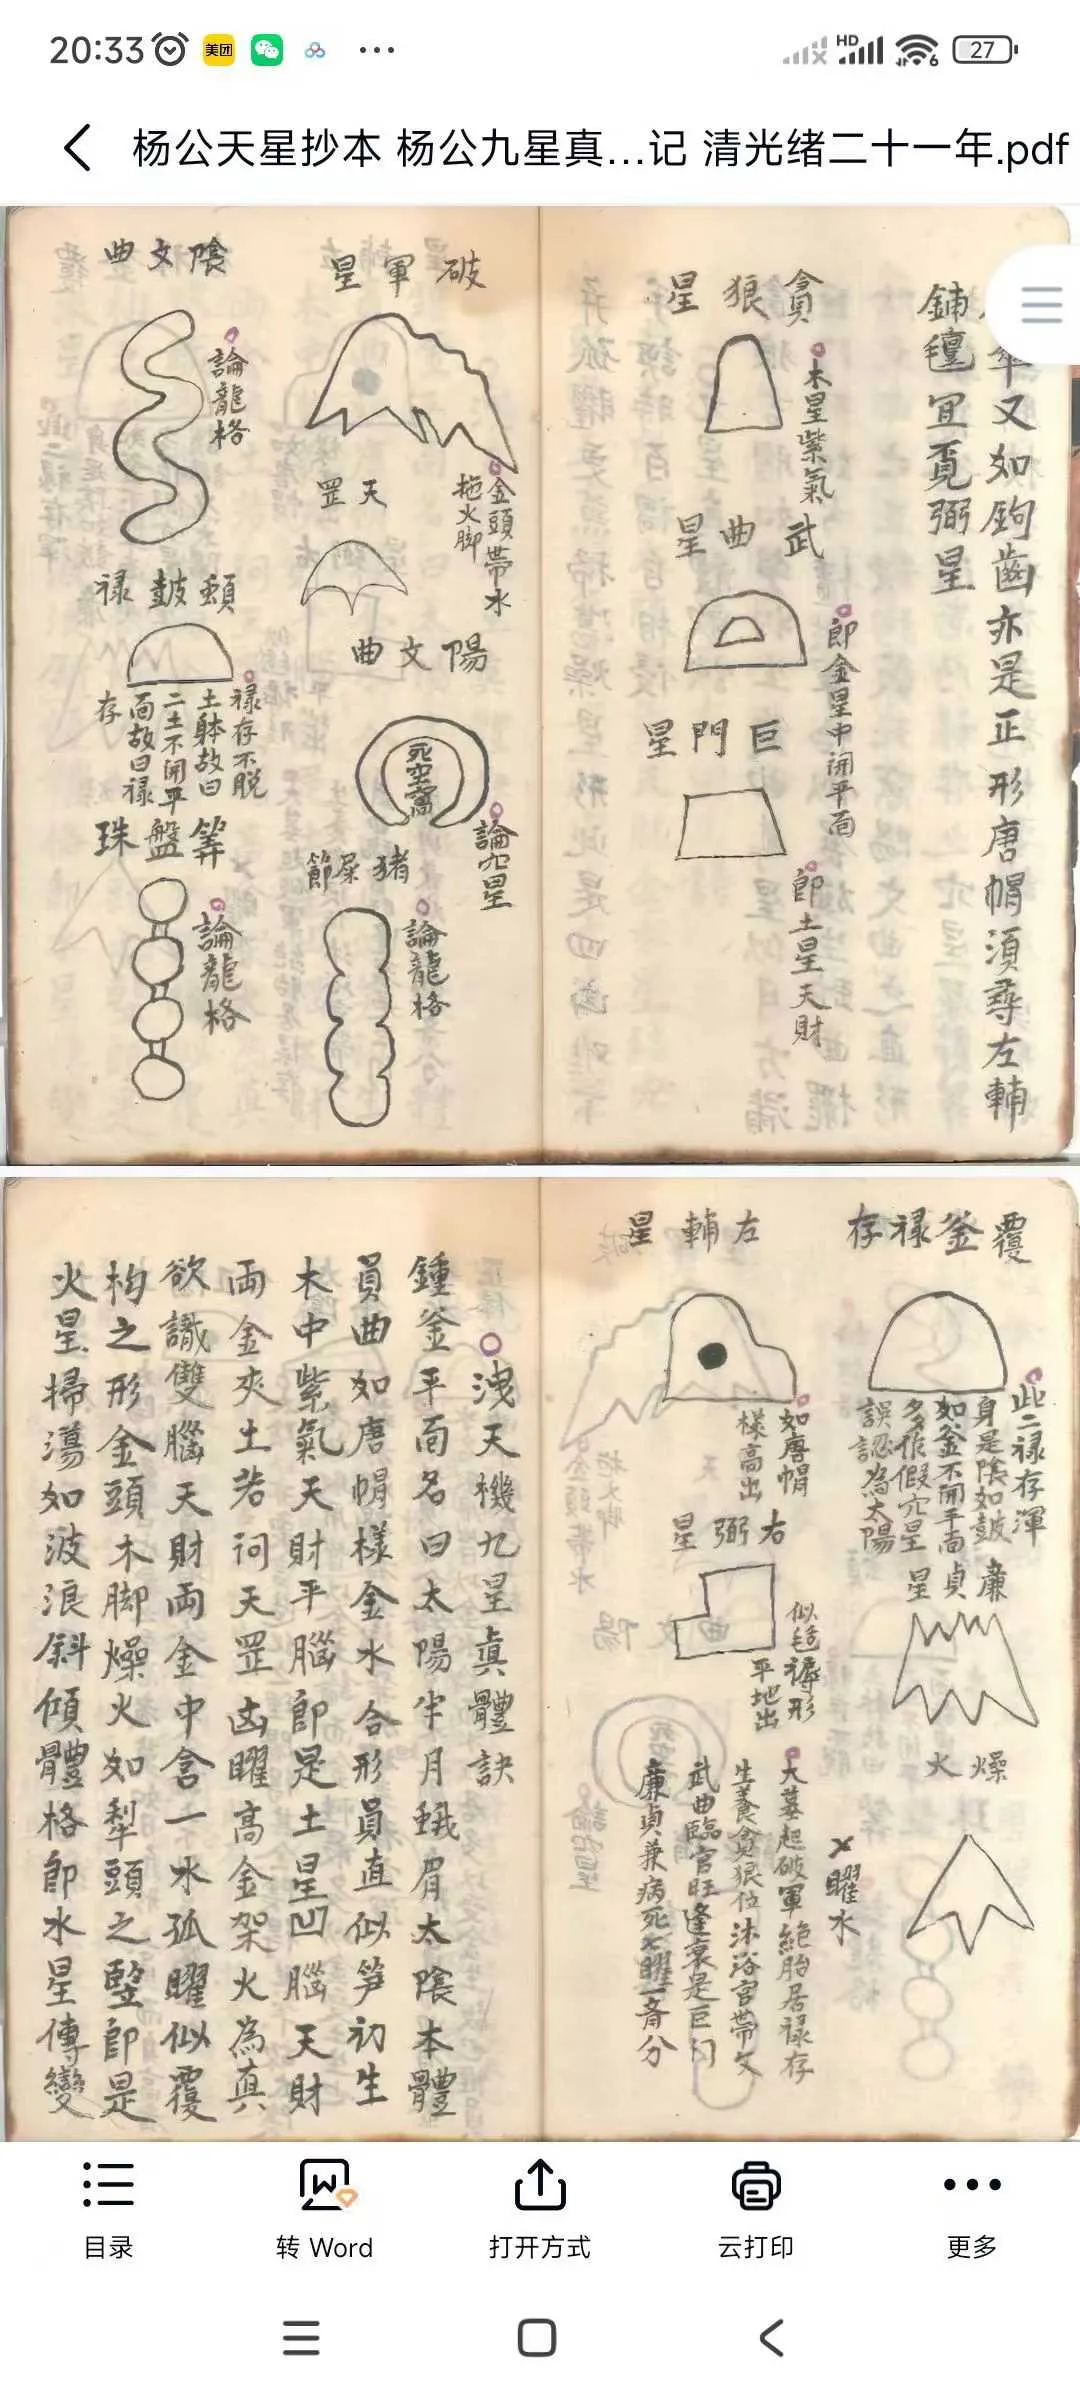 20:33
美团
HD
6
27
杨公天星抄本 杨公九星真...记 清光绪二十一年.pdf
傘又如鉤齒亦是正形唐帽須尋左輔
鋪氊宜覓弼星
貪狼星
木星紫氣
武曲星
即金星中開平面
巨門星
即土星天財
破軍星
金頭帶水
拖火脚
天罡
陽文曲
死空窩
論穴星
猪屎節
論龍格
陰文曲
論龍格
頓鼓禄
禄存不脱
土躰故曰
二土不開平
面故曰禄
存
筭盤珠
論龍格
覆釜禄存
此二禄存渾
身是陰如鼓
如釜不開平面
多作假穴星
誤認為太陽
廉貞星
燥火
曜水
左輔星
如唐帽
樣高出
右弼星
似毡褥形
平地出
大墓起破軍絶胎居禄存
生養貪狼位沐浴官帶文
武曲臨官旺逢衰是巨门
廉貞兼病死七曜一斉分
洩天機九星眞體訣
鍾釜平面名曰太陽半月蛾眉太陰本體
員曲如唐帽樣金水合形員直似笋初生
木中紫氣天財平腦即是土星凹腦天財
両金夾土若问天罡凶曜高金架火為真
欲識雙腦天財両金中含一水孤曜似覆
杓之形金頭木脚燥火如犁頭之竪即是
火星掃蕩如波浪斜傾體格即水星傳變
目录
转 Word
打开方式
云打印
更多